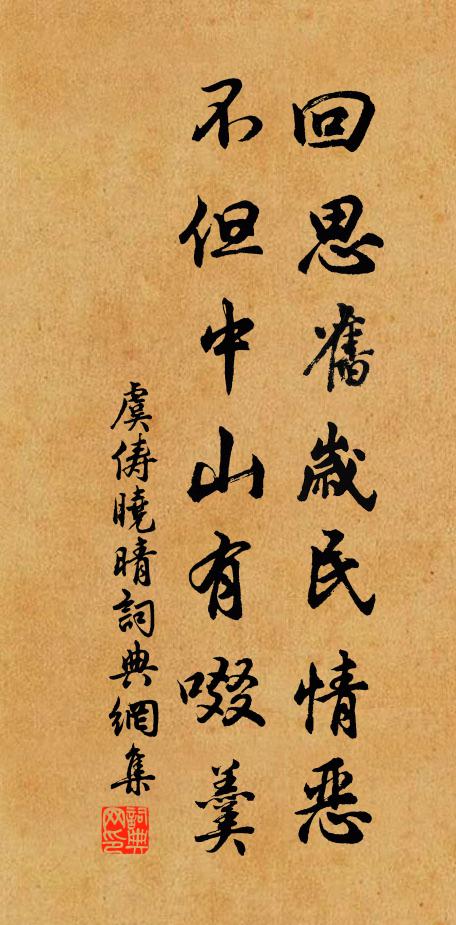 回思舊歲民情惡
不但中山有啜羹
虞儔曉晴詞典網集
詞典網印